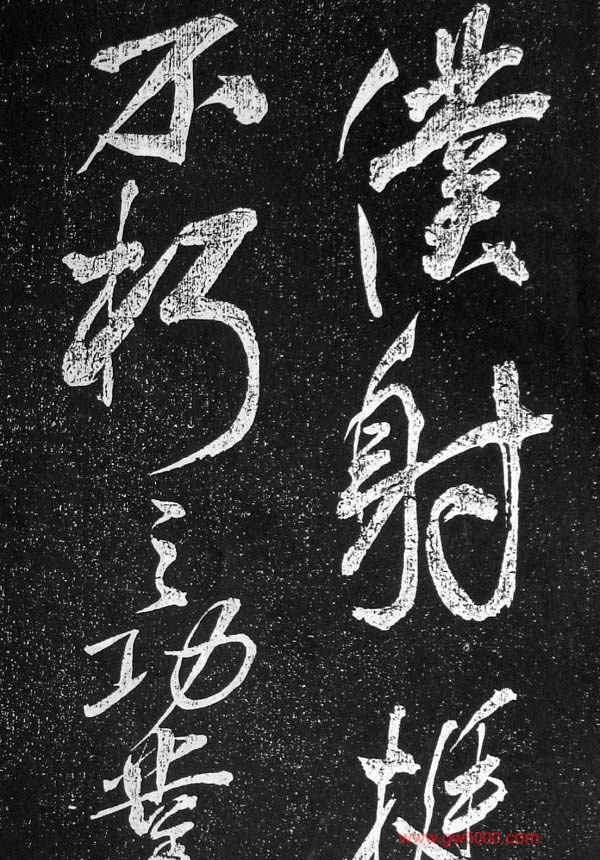 僕射挺
不朽之功業
www.gw5000.com